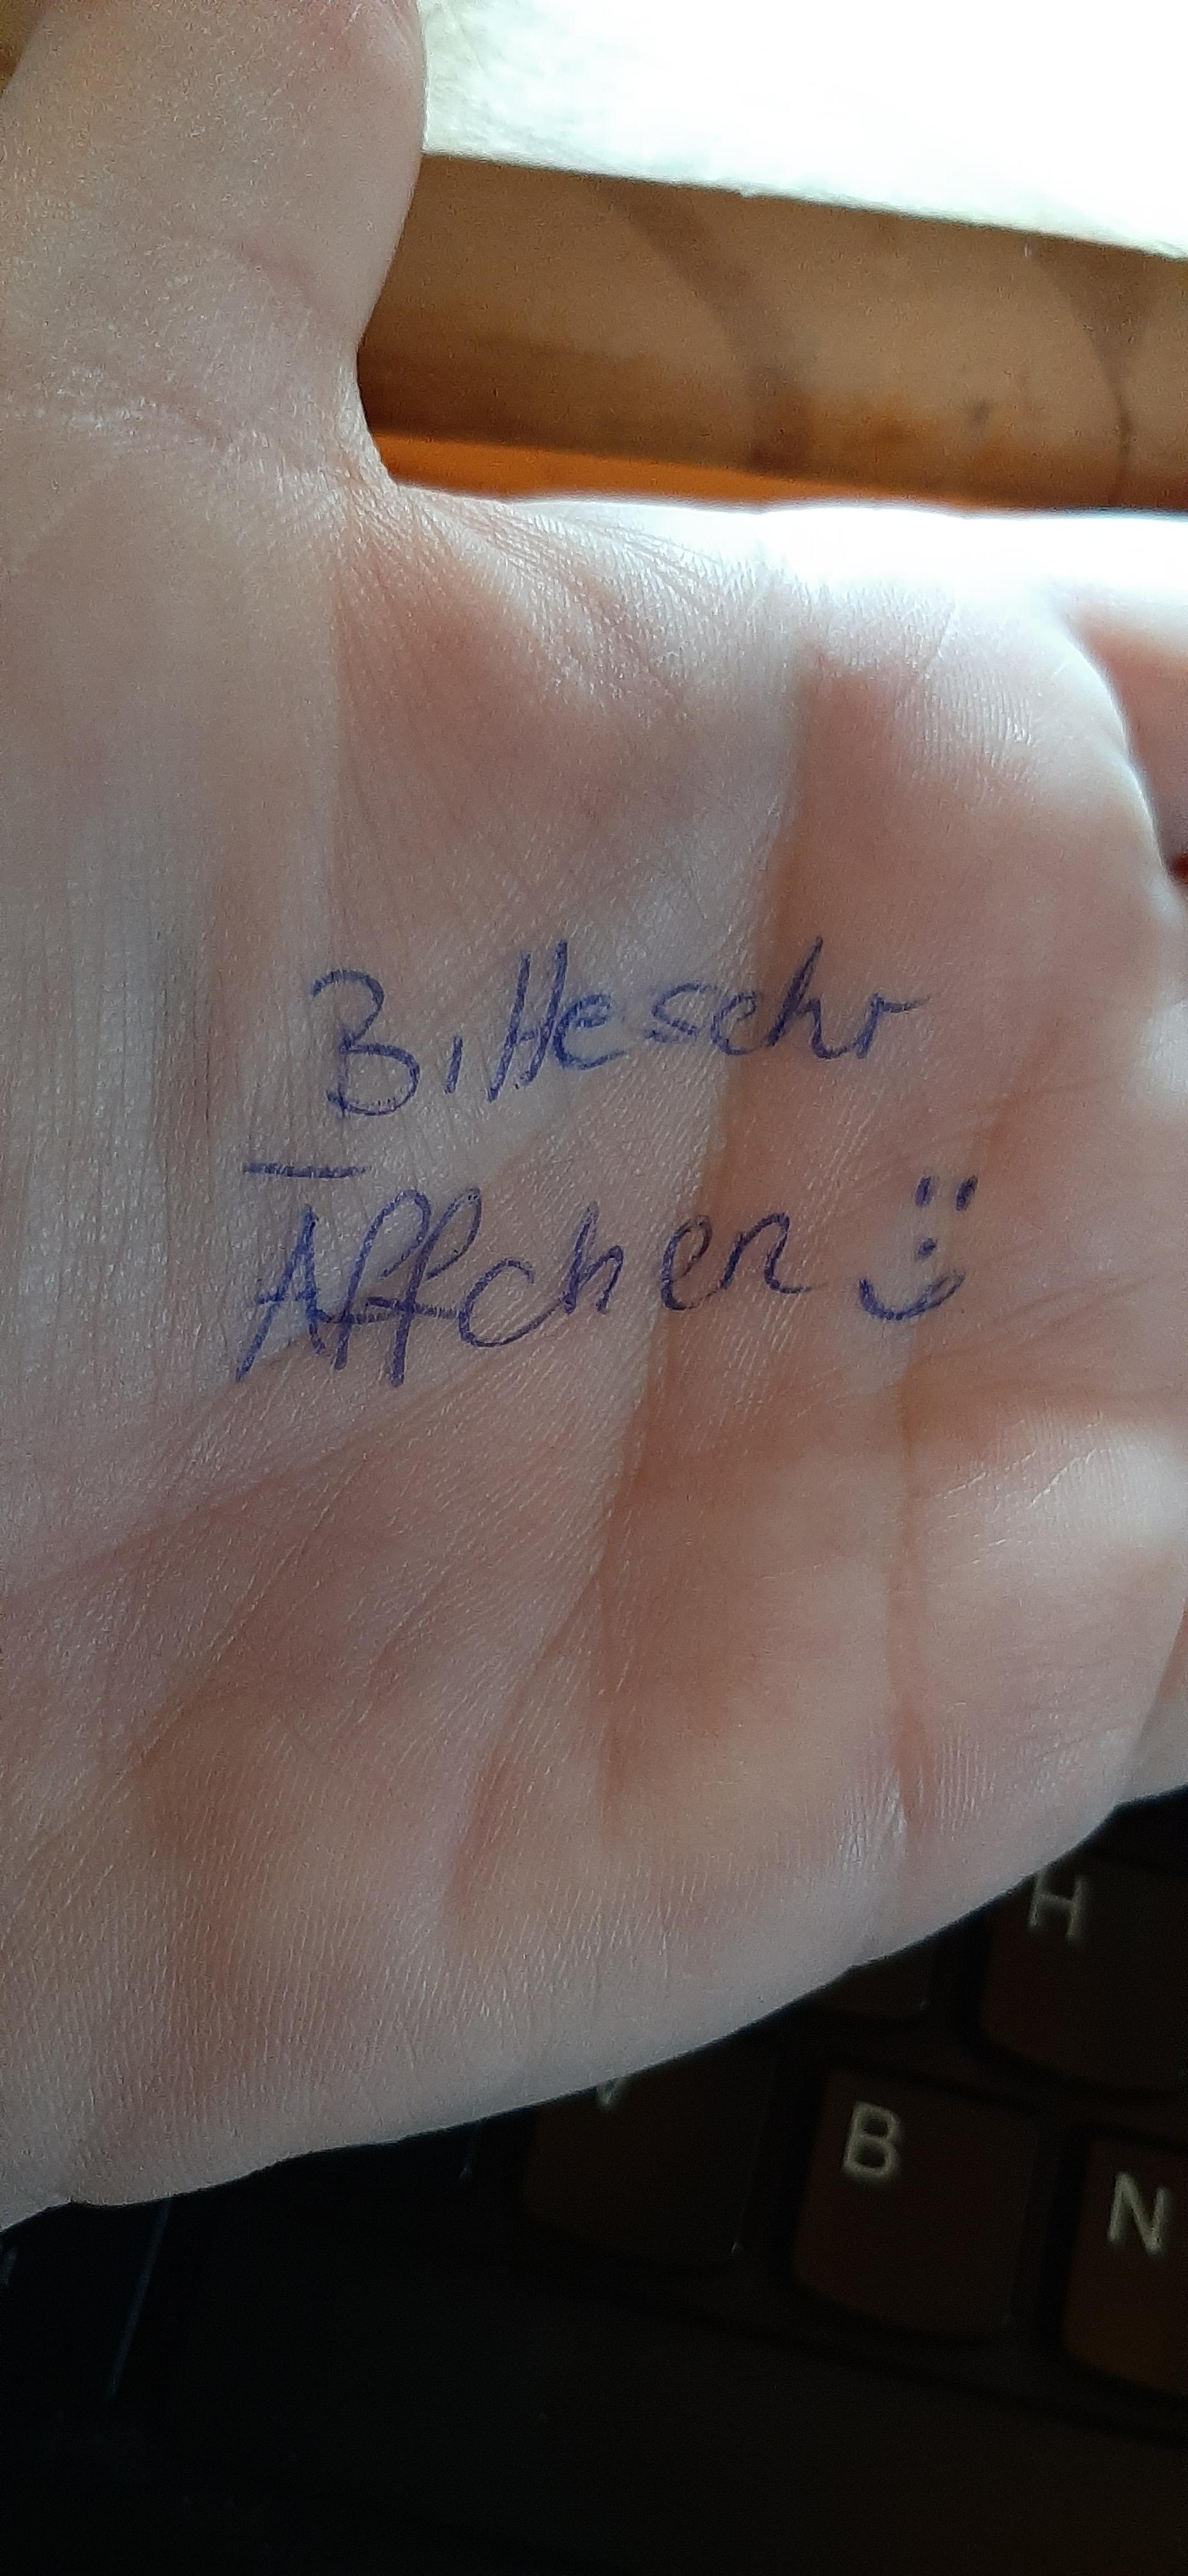 Bitte sehr
Äffchen :)
H
V
B
N